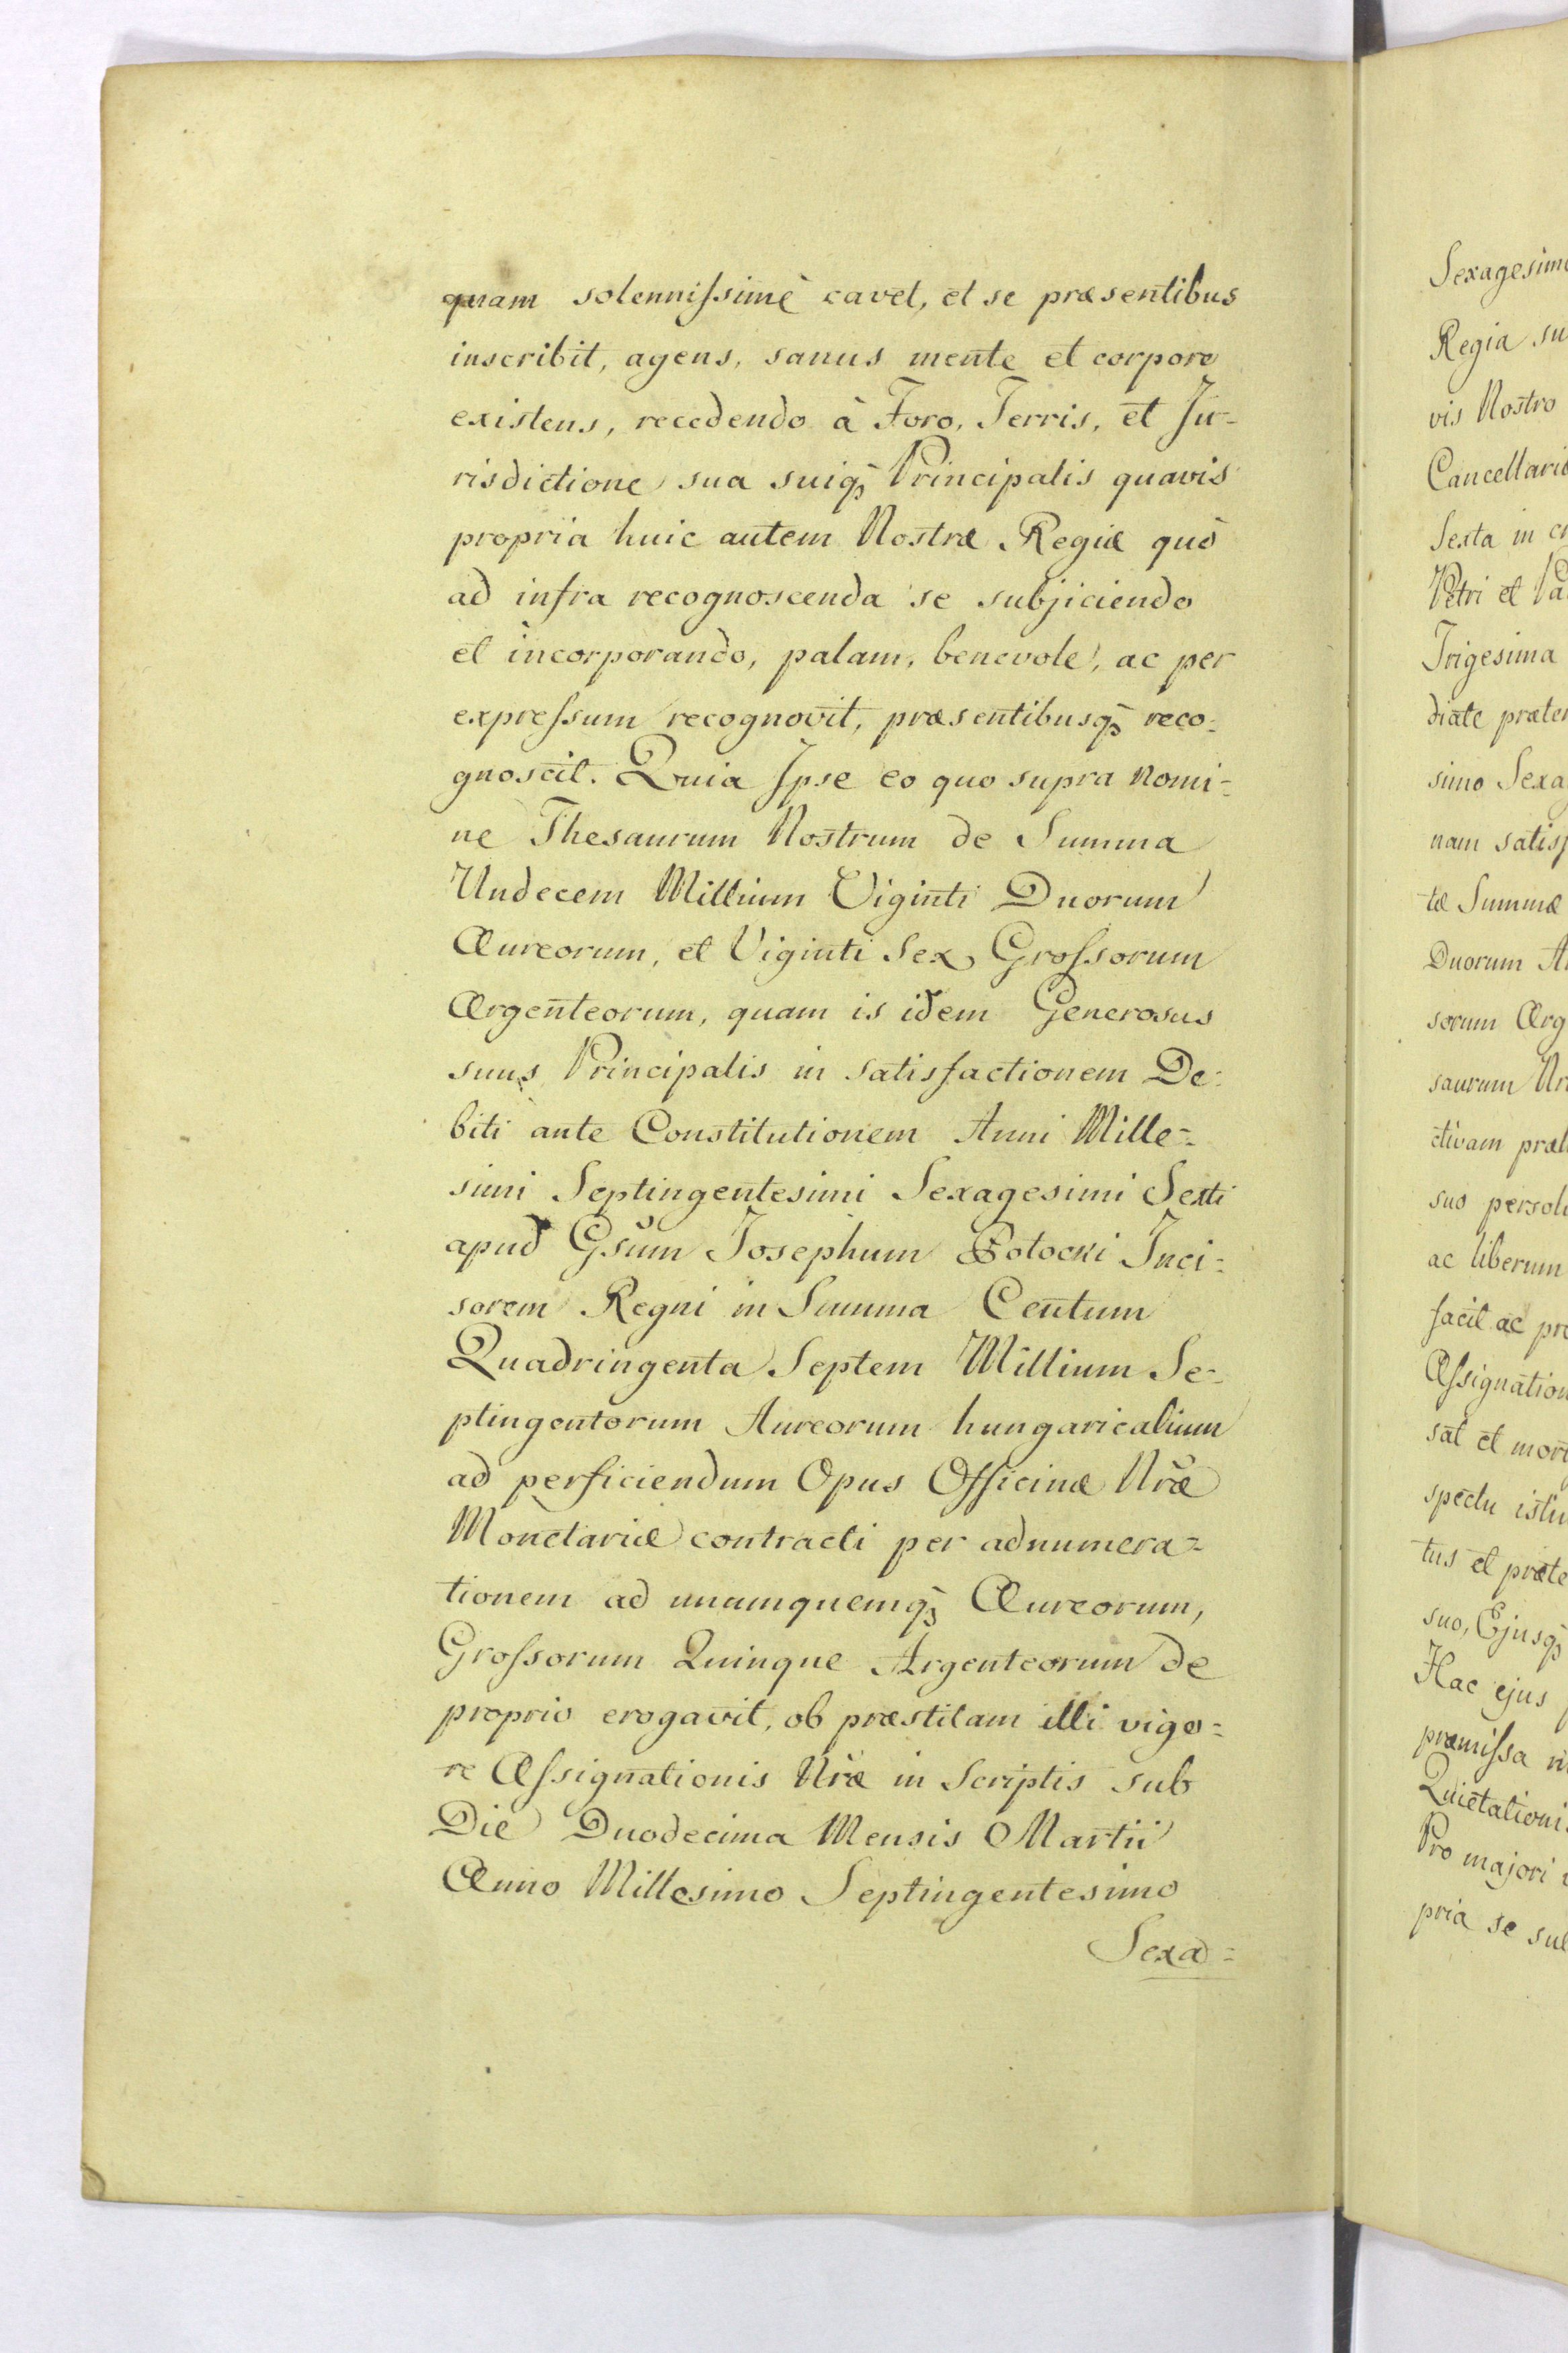 quam solennissimè cavet, et se præsentibus
inscribit, agens, sanus mente et corpore
existens, recedendo à Foro, Terris, et Ju-
risdictione sua suiq3 Principalis quavis
propria huic autem Nostræ Regiæ quò
ad infra recognoscenda se subjiciendo
et incorporando, palam, benevole, ac per
expressum recognovit, præsentibusq3 reco-
gnoscit. Quia Ipse eo quo supra nomi-
ne Thesaurum Nostrum de Summa
Undecem Millium Viginti Duorum
Aureorum, et Viginti Sex Grossorum
Argenteorum, quam is idem Generosus
suus Principalis in satisfactionem De-
biti ante Constitutionem Anni Mille-
simi Septingentesimi Sexagesimi Sexti
apud Gsum Josephum Potocki Inci-
sorem Regni in Summa Centum
Quadringenta Septem Millium Se-
ptingentorum Aureorum hungaricalium
ad perficiendum Opus Officinæ Nræ
Monetariæ contracti per adnumera-
tionem ad unumquemq3 Aureorum,
Grossorum Quinque Argenteorum de
proprio erogavit, ob præstitam illi vigo-
re Assignationis Nræ in Scriptis sub
Die Duodecima Mensis Martii
Anno Millesimo Septingentesimo
Sexa-
Sexagesim
Regia su
vis Nostro
Cancellari
Sexta in c
Petri et Pa
Trigesima
diate præter
simo Sexa
nam satisf
tæ Summæ
Duorum A
sorum Arg
saurum Nr
ctivam præ
suo persol
ac liberum
facit ac pr
Assignation
sat et mor
spectu istu
tus et præte
suo, Ejusq3
Hac ejus
præmissa n
Quietationi
Pro majori
pria se sub